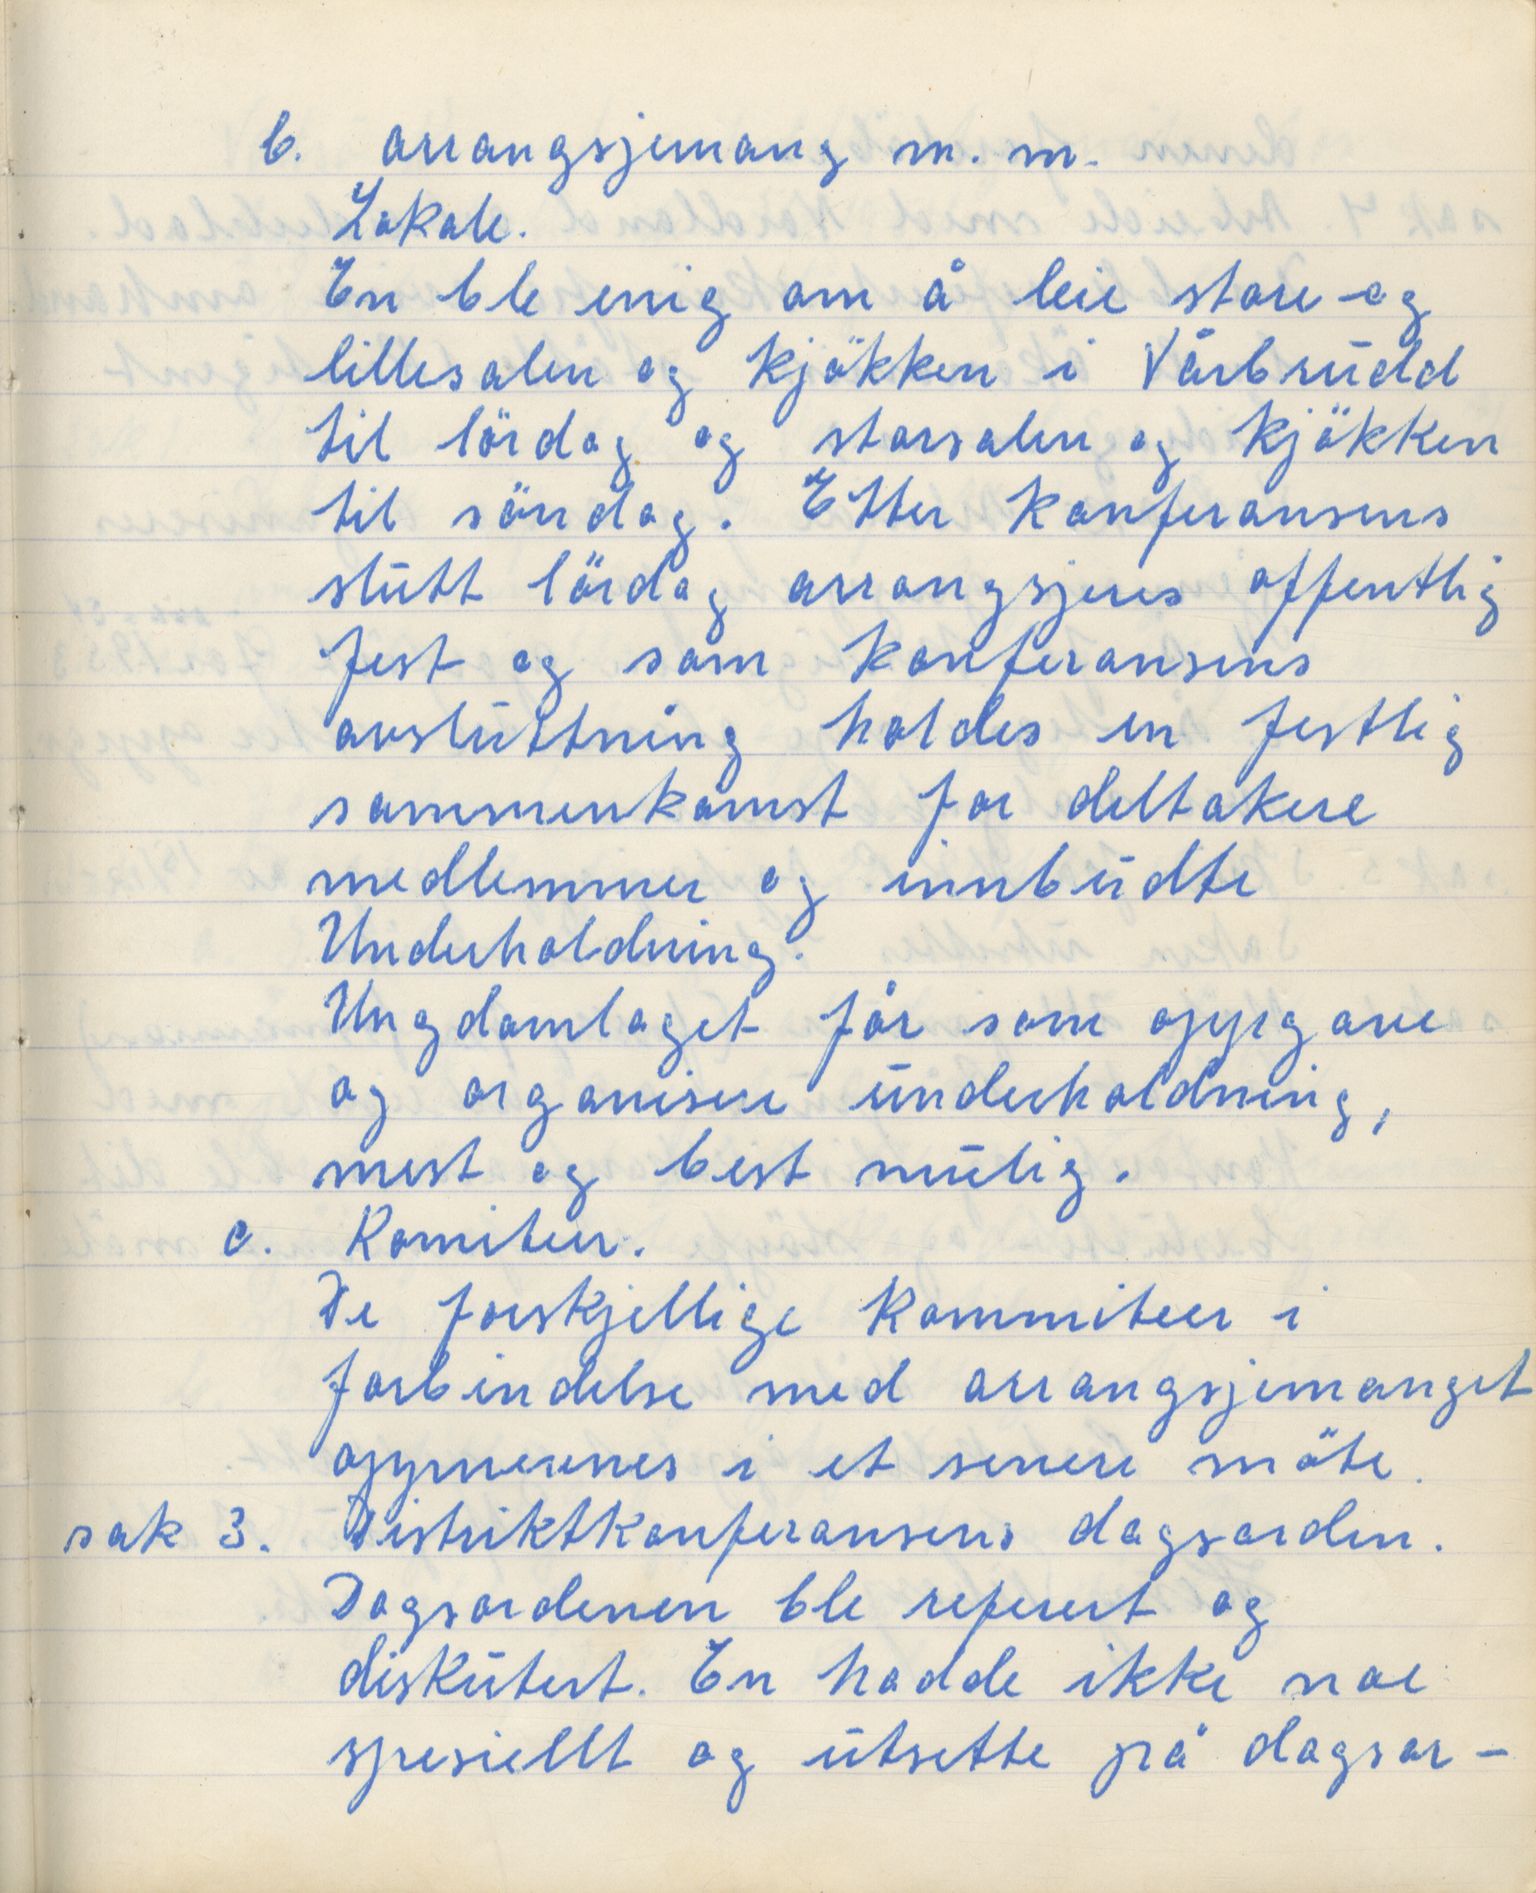 b. arrangsjemang m.m.
Lokale.
En ble enig om å leie store og
lillesalen og kjökken i Vårbrudd
til lördag og storsalen og kjökken
til söndag. Etter konferansens
slutt lördag arrangsjeres offentlig
fest og som konferansens
avsluttning holdes en festlig
sammenkomst for deltakere
medlemmer og innbudte
Underholdning.
Ungdomlaget får som oppgave
og organisere underholdning,
mest og best mulig.
c. Komiteer.
De forskjellige kommiteer i
forbindelse med arrangsjemanget
oppnevnes i et senere möte.
sak 3. Distriktkonferansens dagsorden.
Dagsordenen ble referert og
diskutert. En hadde ikke noe
spesiellt og utsette på dagsor-